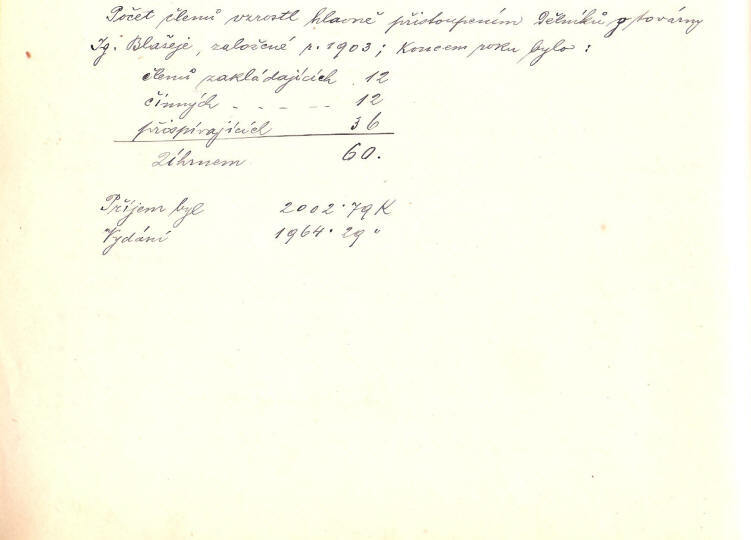 Počet členů vzrostl hlavně přistoupením dělníků z továrny
Ig. Blašeje, založené r. 1903; koncem roku bylo:
členů zakládajících . 12
činných - - - - 12
přispívajících 36
Úhrnem 60.
Příjem byl 2002·79 K
Vydání 1964·29 "